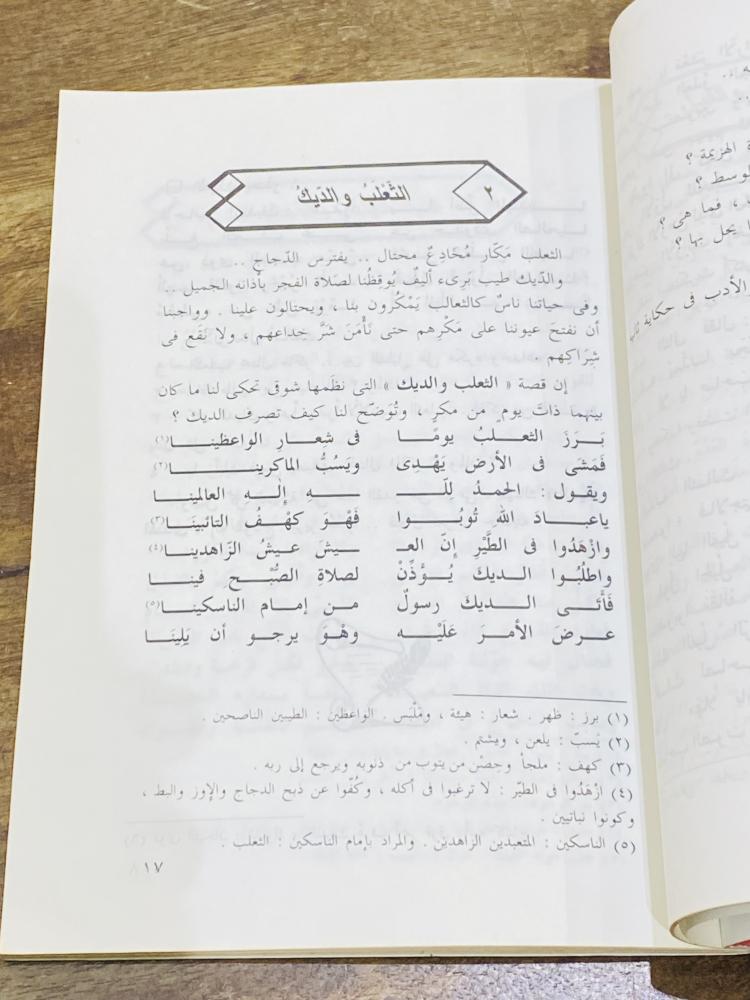 ٢
الثَّعْلَبُ والدّيكُ
الثعلب مَكّار مُخَادِعٌ محتال .. يفترس الدّجاج ..
والدِّيك طيب بَرىء أليفٌ يُوقِظُنا لصَلاة الفجر بأذانه الجميل ..
وفى حياتنا ناسٌ كالثعالب يَمْكُرون بنا ، ويحتالون علينا . وواجبنا
أن نفتحَ عيوننا على مَكْرِهم حتى نَأْمَنَ شرَّ خِداعهم ، ولا نَقَع فى
شِرَاكِهم .
إن قصة « الثعلب والديك » التى نظَمها شوقى تحكى لنا ما كان
بينهما ذاتَ يومٍ من مكرٍ . وتُوَضّح لنا كيف تصرف الديك ؟
بَرَزَ الثعلبُ يومًا فى شِعارِ الواعظينا(١)
فَمَشَى فى الأرض يَهْدِى ويَسُبُّ الماكرينا(٢)
ويقول : الحمدُ لِلّـ ـهِ إلٰهِ العالمينا
ياعبادَ اللهِ تُوبُوا فَهْوَ كهْفُ التائبينَا(٣)
وازْهَدُوا فى الطَّيْرِ إنّ العـ ـيشَ عيشُ الزّاهدينا(٤)
واطلُبُوا الديكَ يُؤَذِّنْ لصلاةِ الصُّبْحِ فينا
فَأَتَى الديكَ رسولٌ من إمام الناسكينا(٥)
عرضَ الأمرَ عَلَيْه وهْوَ يرجو أن يَلِينَا
(١) برز : ظهر . شعار : هيئة ، ومَلْبَس . الواعظين : الطيبين الناصحين .
(٢) يَسبّ : يلعن ، ويشتم .
(٣) كهف : ملجأ وحِصْن من يتوب من ذنوبه ويرجع إلى ربه .
(٤) ازْهَدُوا فى الطيْر : لا ترغبوا فى أكله ، وكُفّوا عن ذبح الدجاج والإوز والبط ،
وكونوا نباتيين .
(٥) الناسكين : المتعبدين الزاهدين . والمراد بإمام الناسكين : الثعلب .
١٧
الهزيمة ؟
، فما هى ؟
يحل بها ؟
الأدب فى حكاية